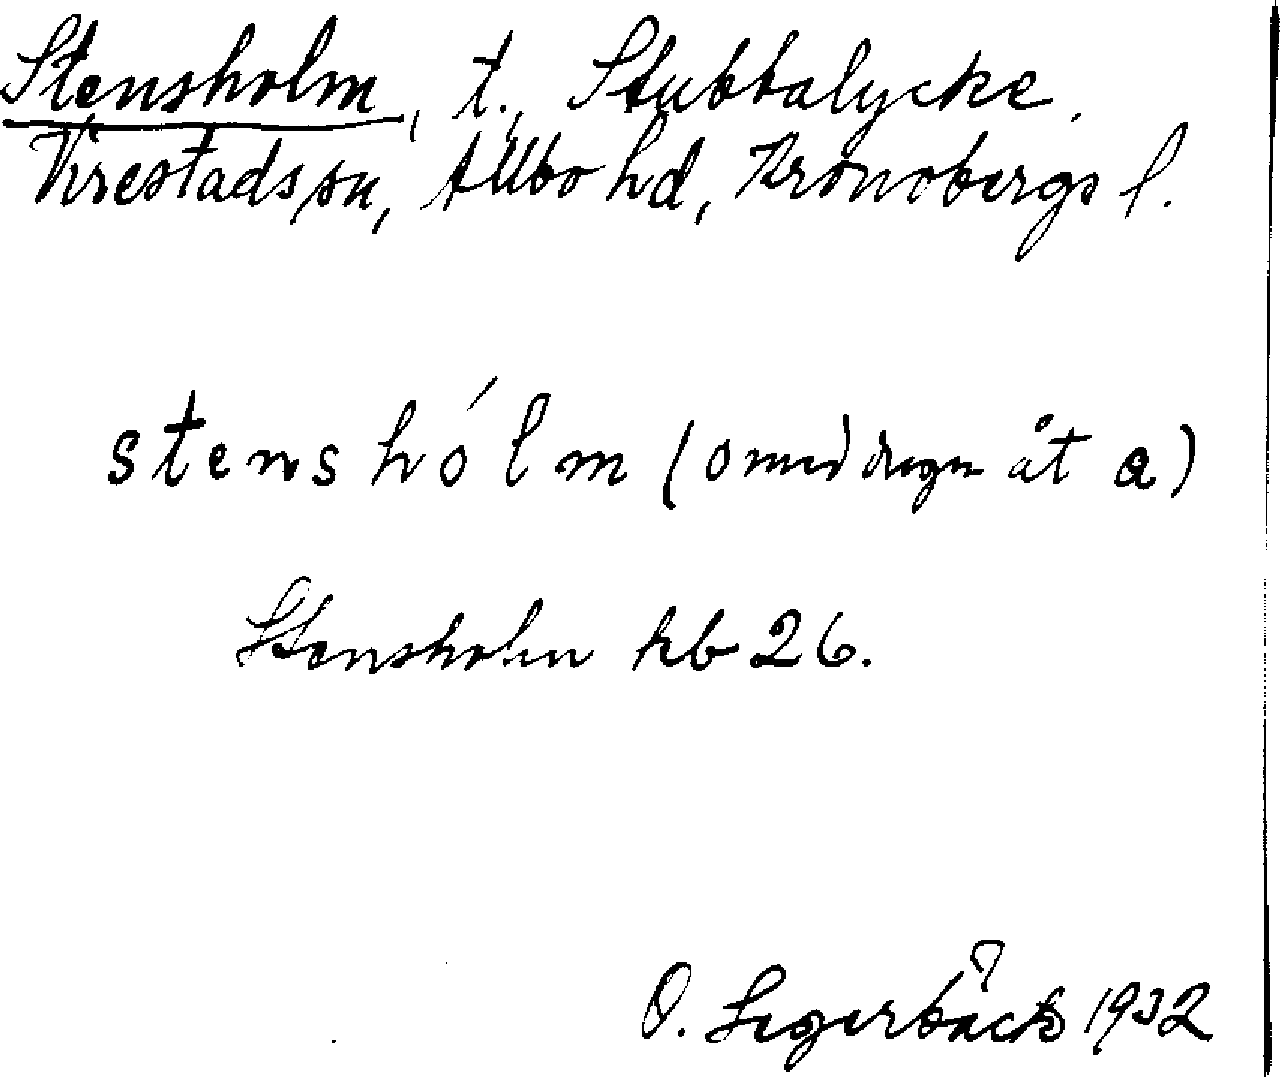 Stensholm, t., Stubbalycke.
Virestads sn, Allbo hd, Kronobergs l.
stenshólm (o med dragn åt a)
Stensholm kb 26.
O. Segerbäck 1932